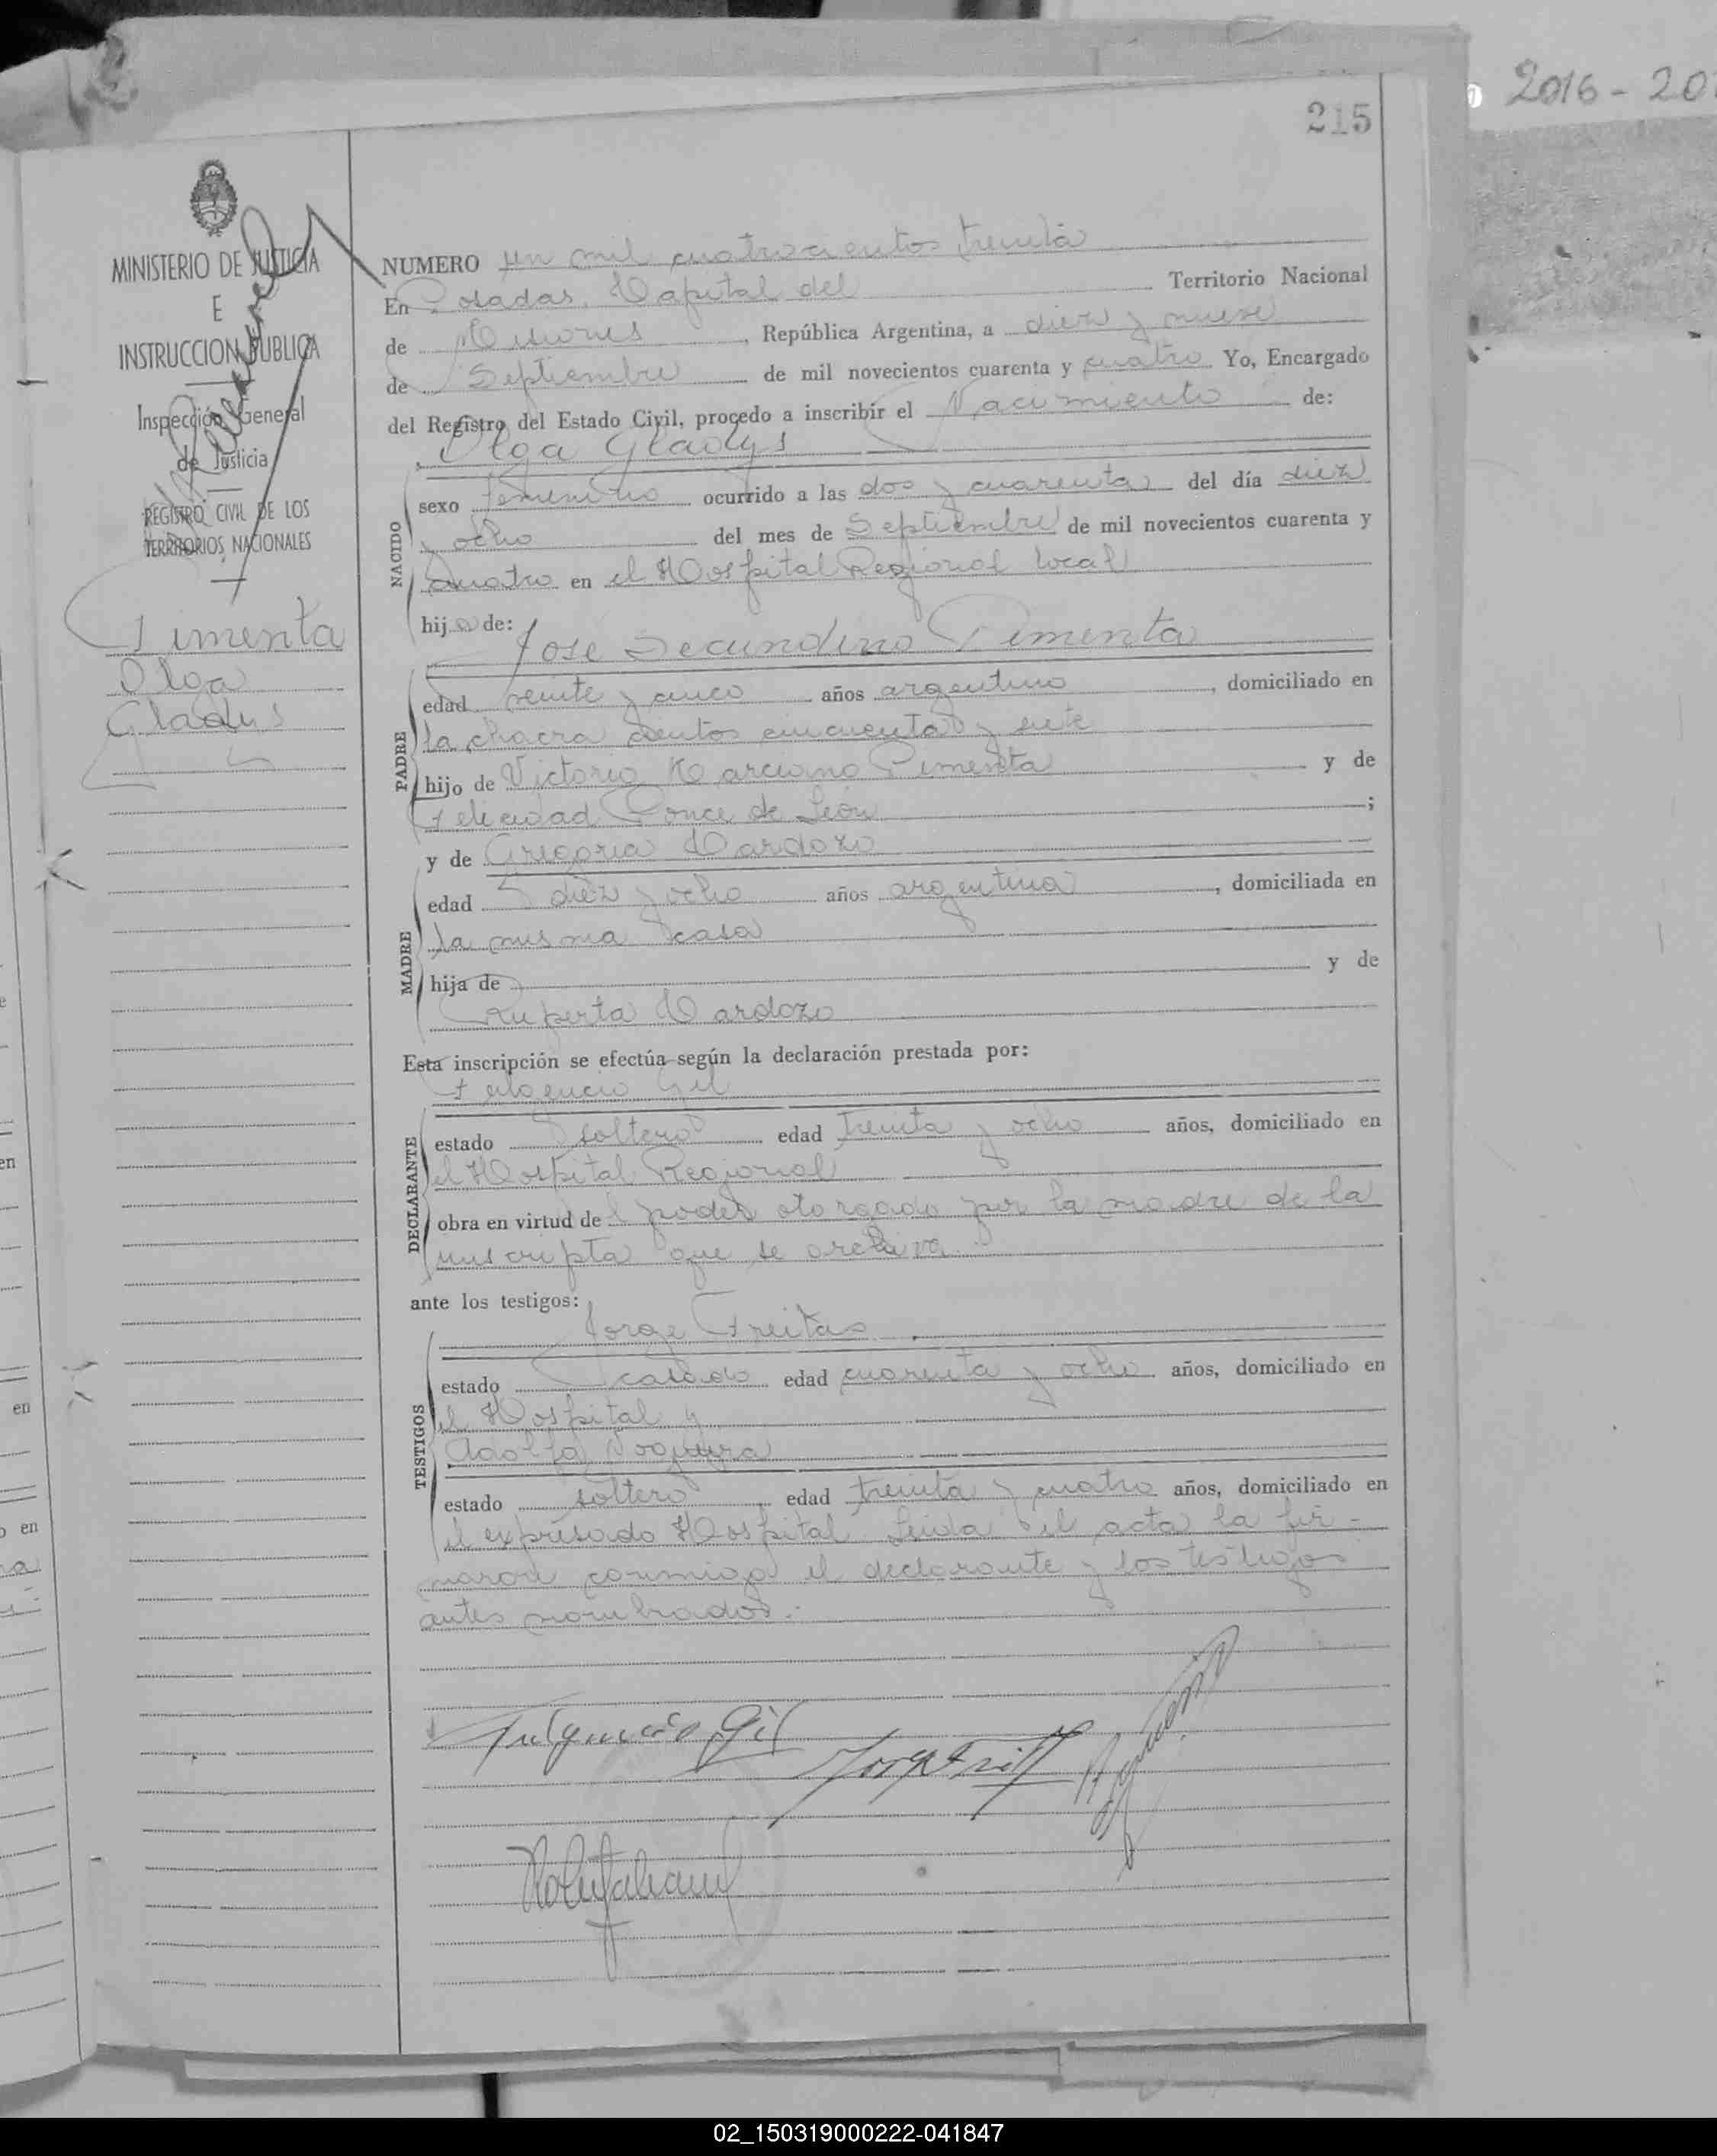 2016-20
215
MINISTERIO DE JUSTICIA
E
INSTRUCCION PUBLICA
Inspección General
de Justicia
REGISTRO CIVIL DE LOS
TERRITORIOS NACIONALES
Pimenta
Olga
Gladys
NUMERO un mil cuatrocientos treinta
En Posadas, Capital del Territorio Nacional
de Misiones, República Argentina, a diez y nueve
de Septiembre de mil novecientos cuarenta y cuatro Yo, Encargado
del Registro del Estado Civil, procedo a inscribir el Nacimiento de:
Olga Gladys
NACIDO
sexo femenino ocurrido a las dos y cuarenta del día diez
y ocho del mes de Septiembre de mil novecientos cuarenta y
cuatro en el Hospital Regional local
hija de:
José Secundino Pimenta
PADRE
edad veinte y cinco años argentino, domiciliado en
la chacra cientos cincuenta y siete
hijo de Victorio Marciano Pimenta y de
Felicidad Ponce de León;
y de Gregoria Cardozo
MADRE
edad diez y ocho años argentina, domiciliada en
la misma casa
hija de y de
Ruperta Cardozo
Esta inscripción se efectúa según la declaración prestada por:
Fulgencio Gil
DECLARANTE
estado soltero edad treinta y ocho años, domiciliado en
el Hospital Regional
obra en virtud del poder otorgado por la madre de la
inscripta que se archiva.
ante los testigos:
Jorge Freitas
TESTIGOS
estado casado edad cuarenta y ocho años, domiciliado en
el Hospital y
Adolfo
estado soltero edad treinta y cuatro años, domiciliado en
el expresado Hospital Leida el acta la fir-
maron conmigo el declarante y los testigos
antes nombrados.-
Fulgencio Gil
02_150319000222-041847